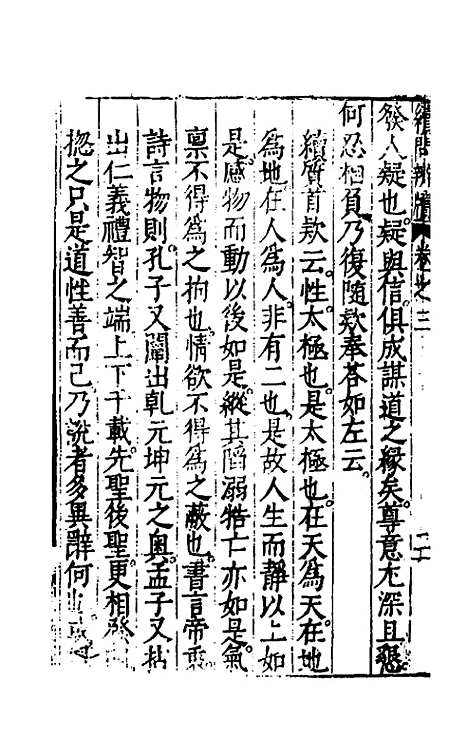 續問辨牘 卷之三 二十
發人疑也疑與信俱成謀道之緣矣尊意尤深且懇
何忍相負乃復隨欵奉荅如左云
續質首欵云性太極也是太極也在天為天在地
為地在人為人非有二也是故人生而靜以上如
是感物而動以後如是縱其陷溺牿亡亦如是氣
禀不得為之拘也情欲不得為之蔽也書言帝衷
詩言物則孔子又闡出乹元坤元之奧孟子又拈
出仁義禮智之端上下千載先聖後聖更相發
揔之只是道性善而已乃說者多異辭何